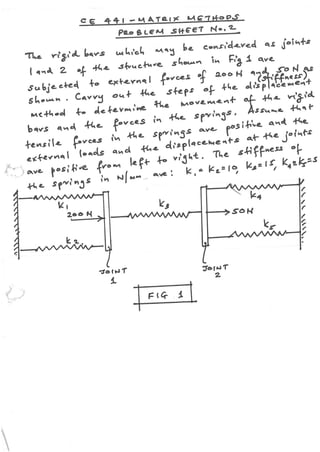 CE 441 - MATRIX METHODS
PROBLEM SHEET No. 2
The rigid bars which may be considered as joints
1 and 2 of the structure shown in Fig 1 are
subjected to external forces of 200N and 50N as
shown. Carry out the steps of the displacement
(stiffness)
method to determine the movement of the rigid
bars and the forces in the springs. Assume that
tensile forces in the springs are positive and the
external loads and the displacements at the joints
are positive from left to right. The stiffness of
the springs in N/mm are: K1 = K2 = 10, K3 = 15, K4 = K5 = 5
K1
K3
K4
200N
50N
K2
K5
JOINT
1
JOINT
2
FIG 1